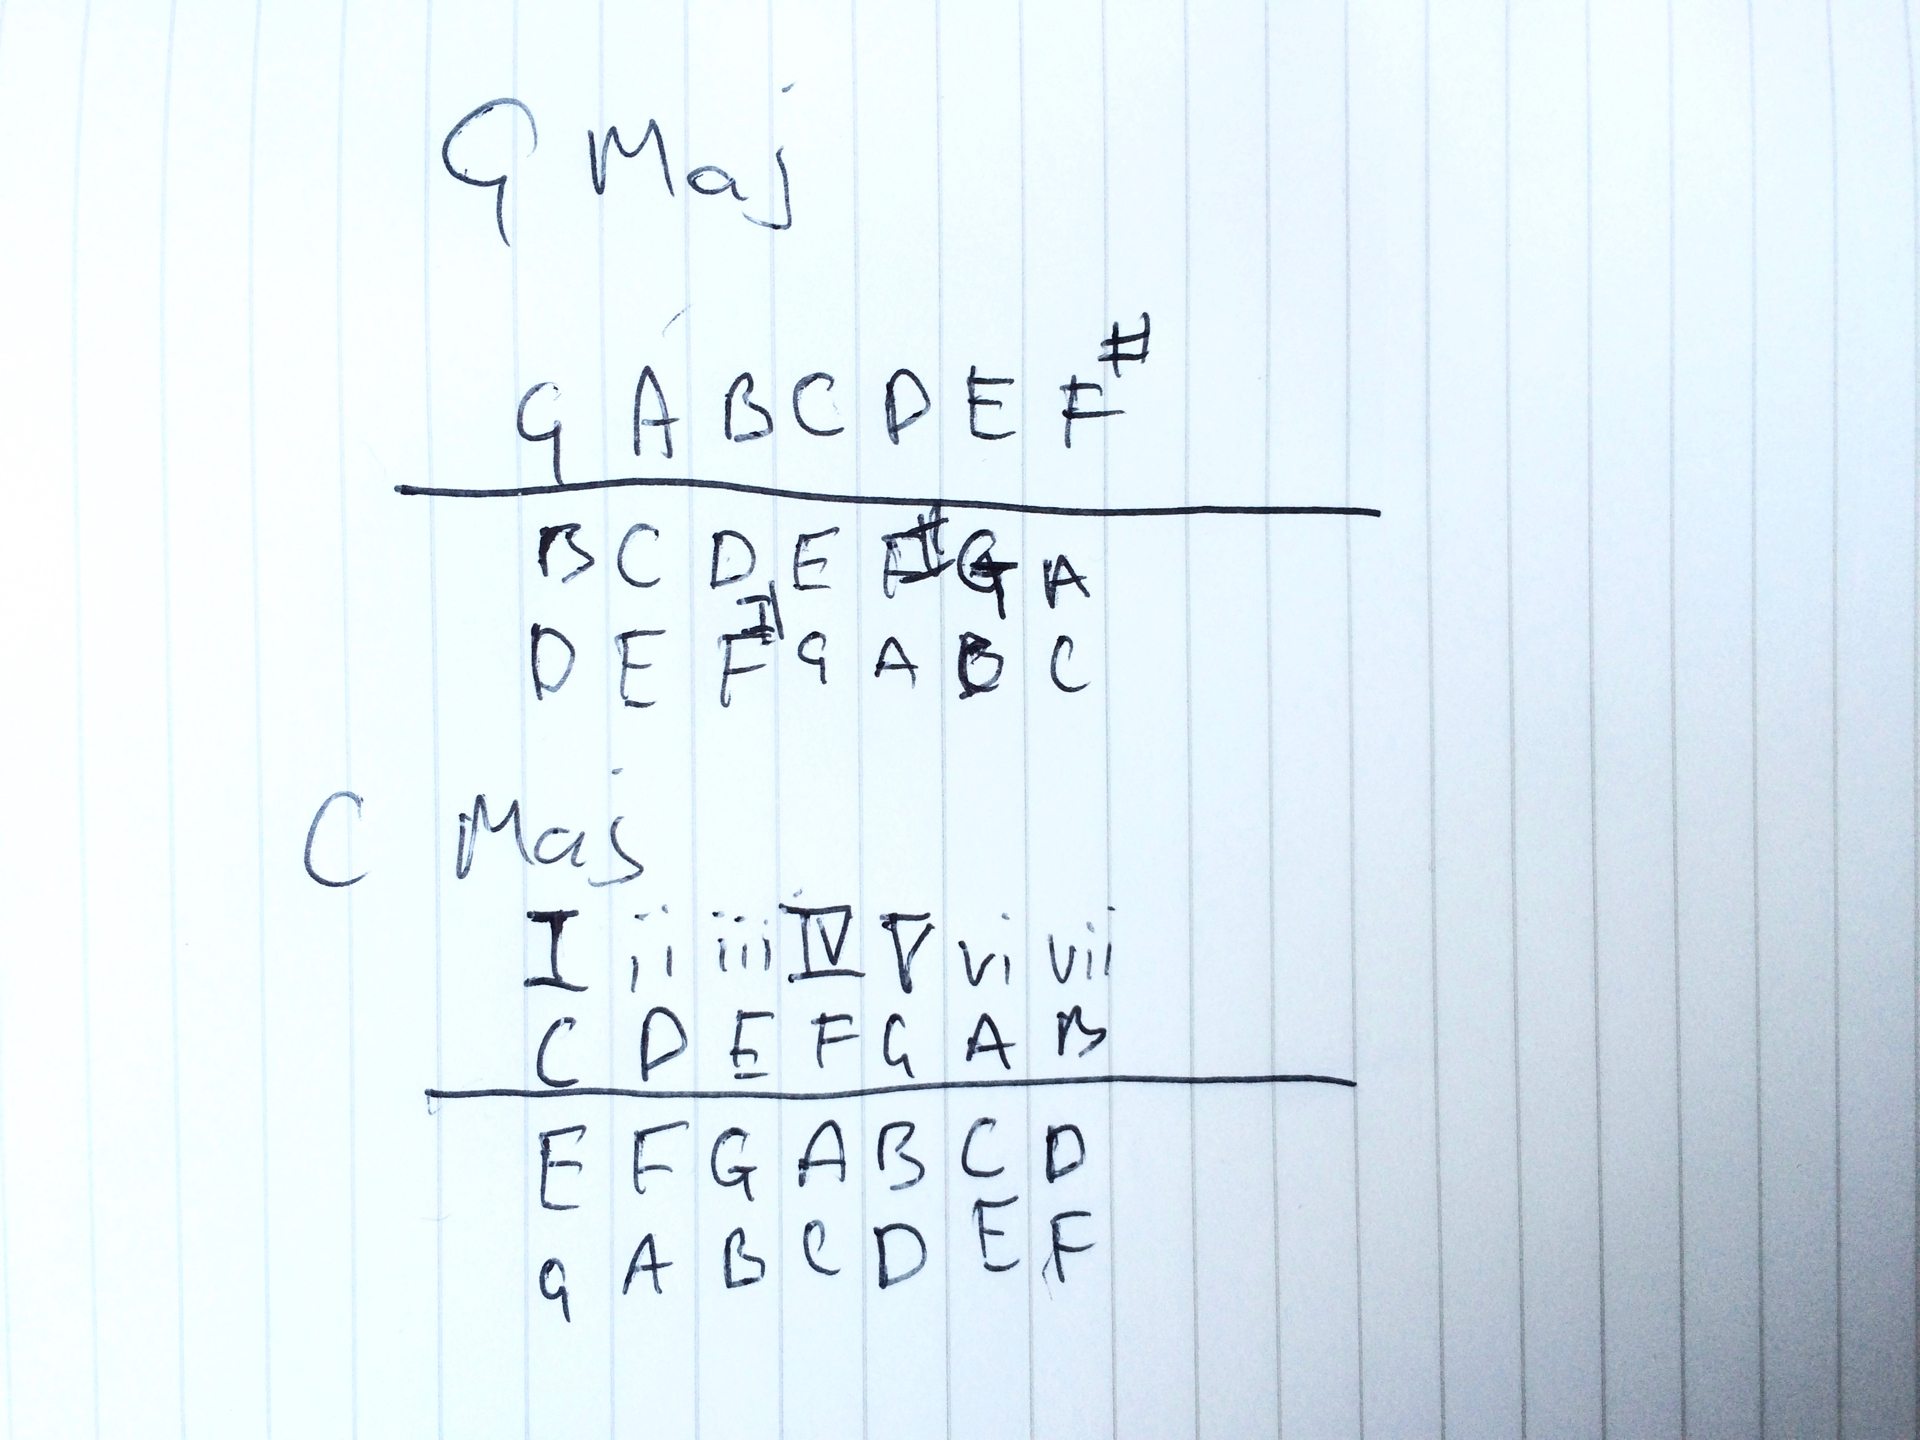 G Maj
G A B C D E F#
B C D E F# G A
D E F# G A B C
C Maj
I ii iii IV V vi vii
C D E F G A B
E F G A B C D
G A B C D E F